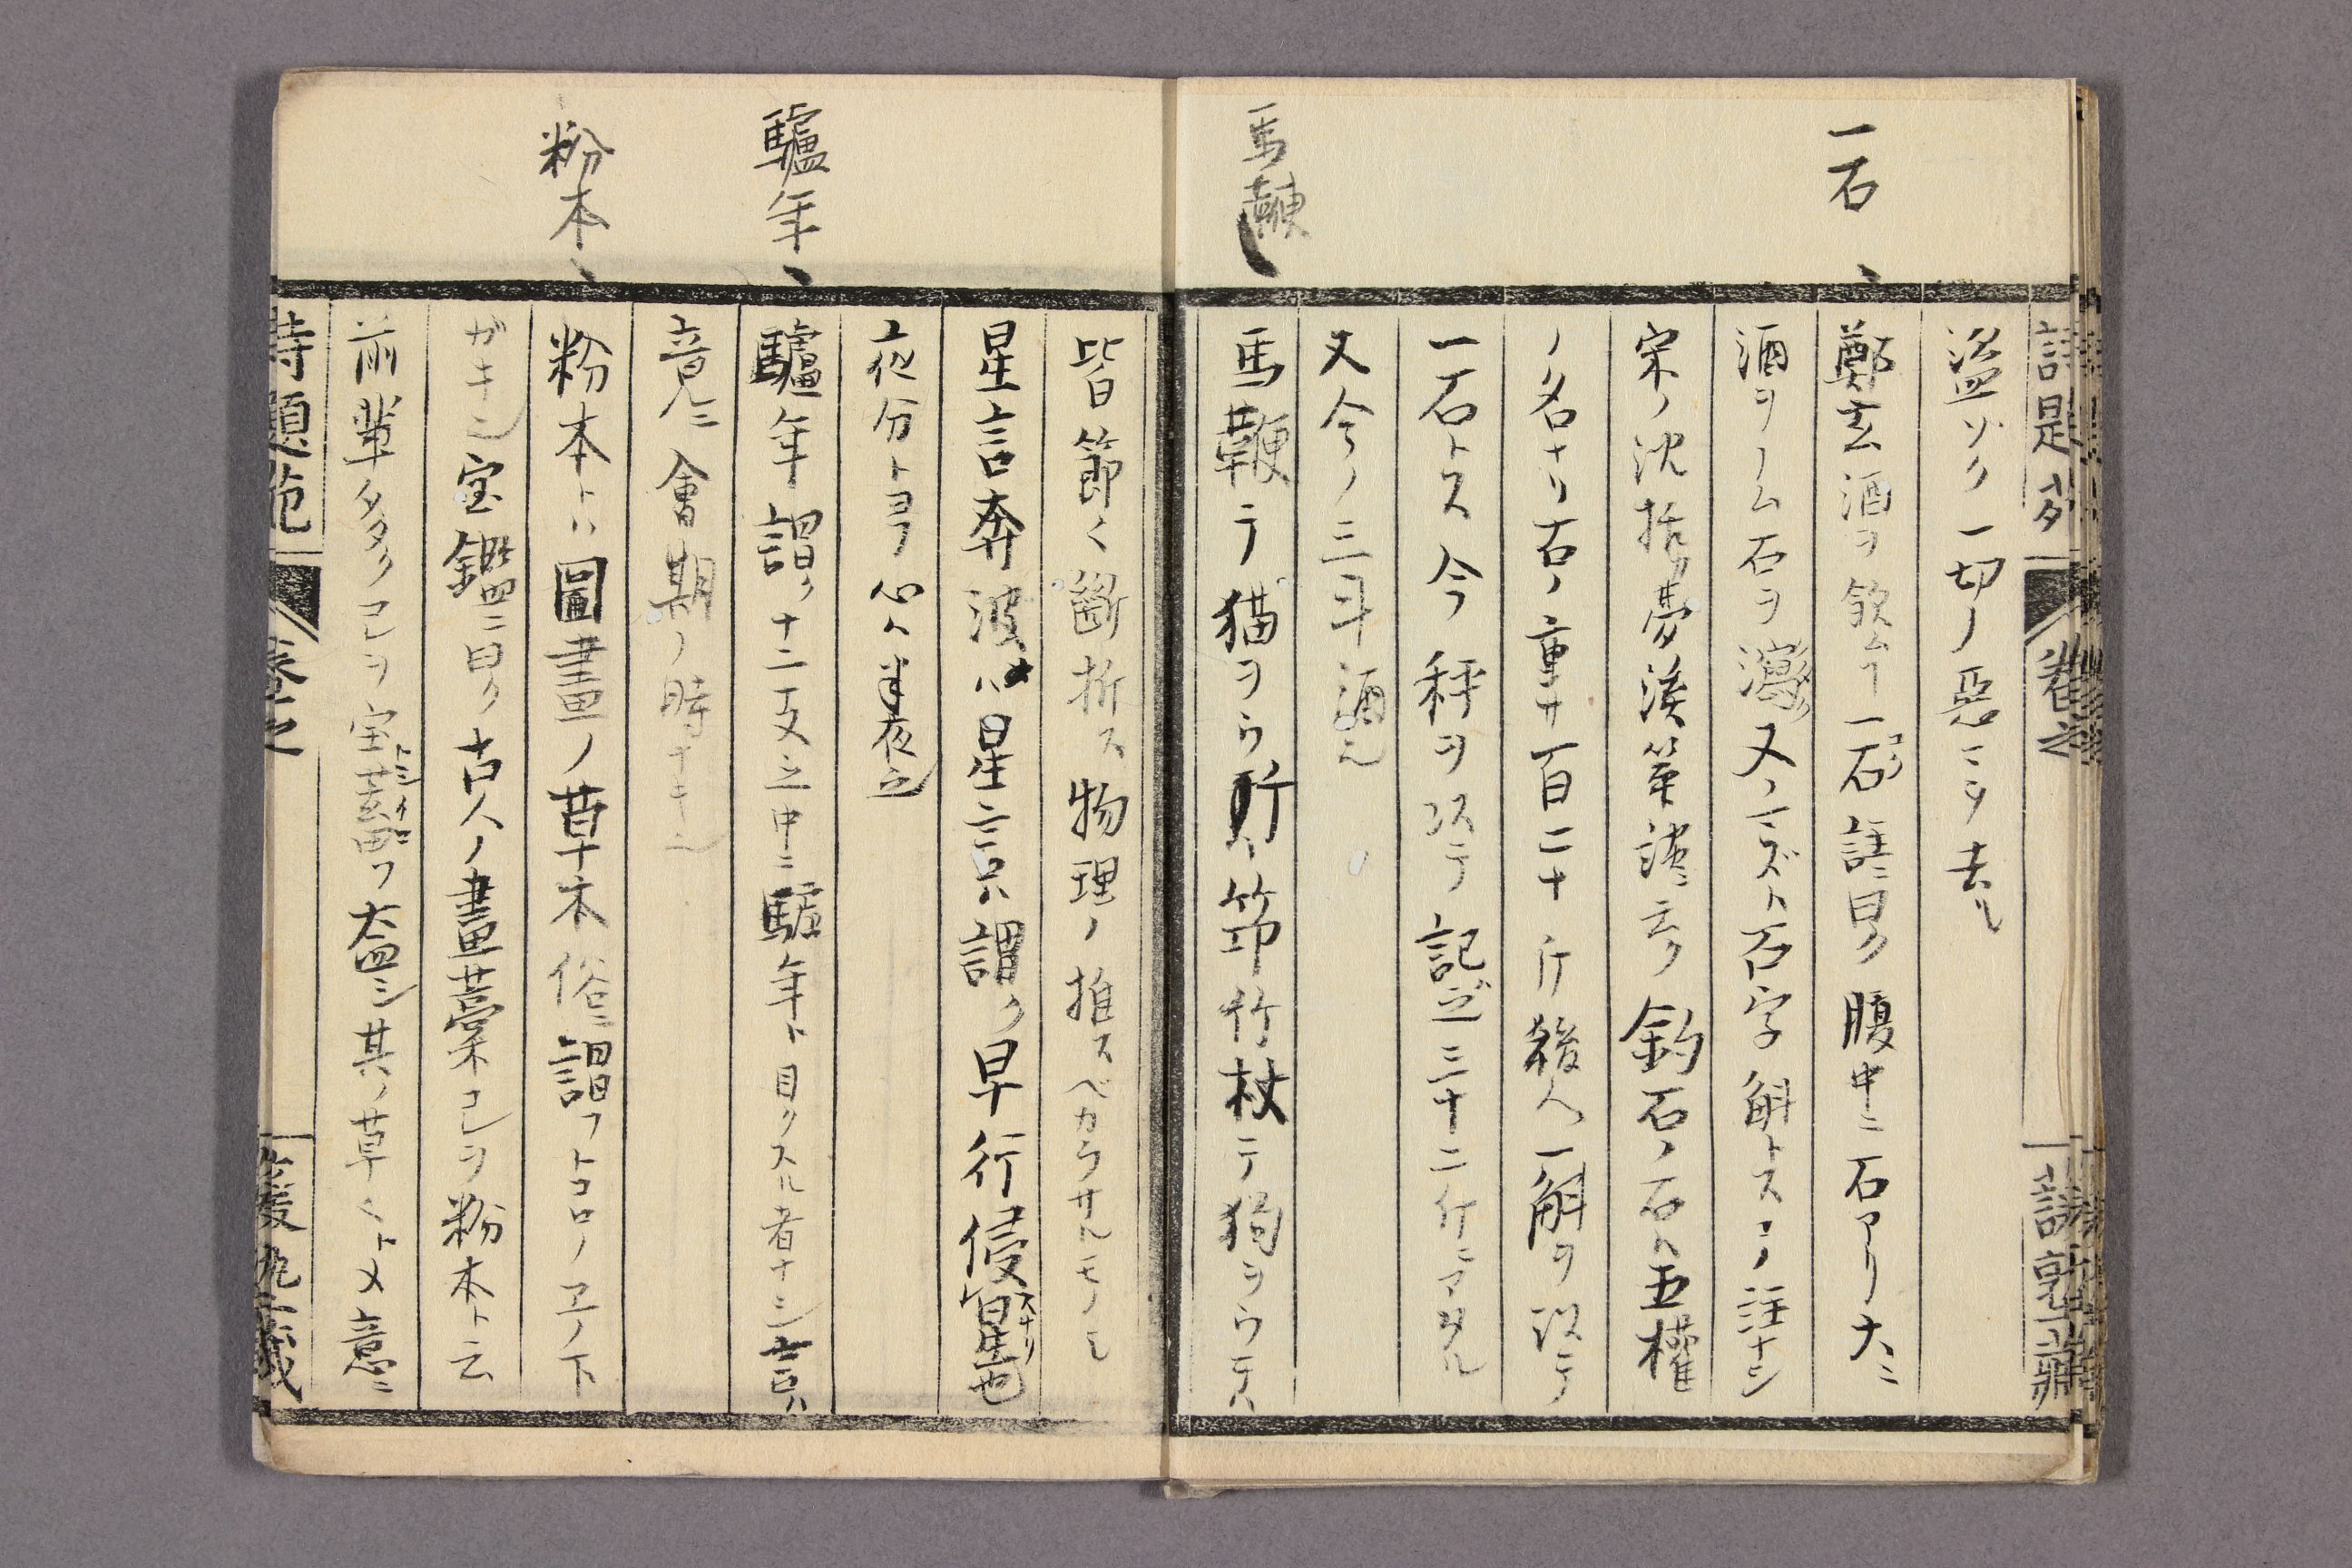 一石
盗ゾク一切ノ惡ミヲ去ル
鄭玄酒ヲ飲ム丁一石註ニ曰ク腹中ニ石アリ大ニ
酒ヲノム石ヲ瀉又ノミズト石字斛トスコノ註ナシ
宋ノ沈括ガ夢溪筆談ニ云ク釣石ノ石ハ五權
ノ名ナリ石ノ重サ百二十斤後人一斛ヲ以テ
一石トス今秤ヲ以テ記之三十二斤ニアタル
又今ノ三斗酒
馬鞭
馬鞭テ猫ヲウ所ハ節竹杖テ狗ヲウテハ
皆節々斷折ス物理ノ推スベカラサルモノ
星言奔波ハ星言ハ謂ク早行侵星也
夜分トヨフ心ハ半夜之
驢年
驢年謂ク十二支之中ニ驢年ト目クスル者ナシ言ハ
竟ニ會期ノ時ナキ
粉本
粉本トハ圖畫ノ草木俗ニ謂フトコロノヱノ下
ガキ宝鑑ニ曰ク古人ノ畫藁コレヲ粉本ト云
前輩多クコレヲ宝蓄フ盖シ其ノ草々トメ意ニ
詩題苑
巻之